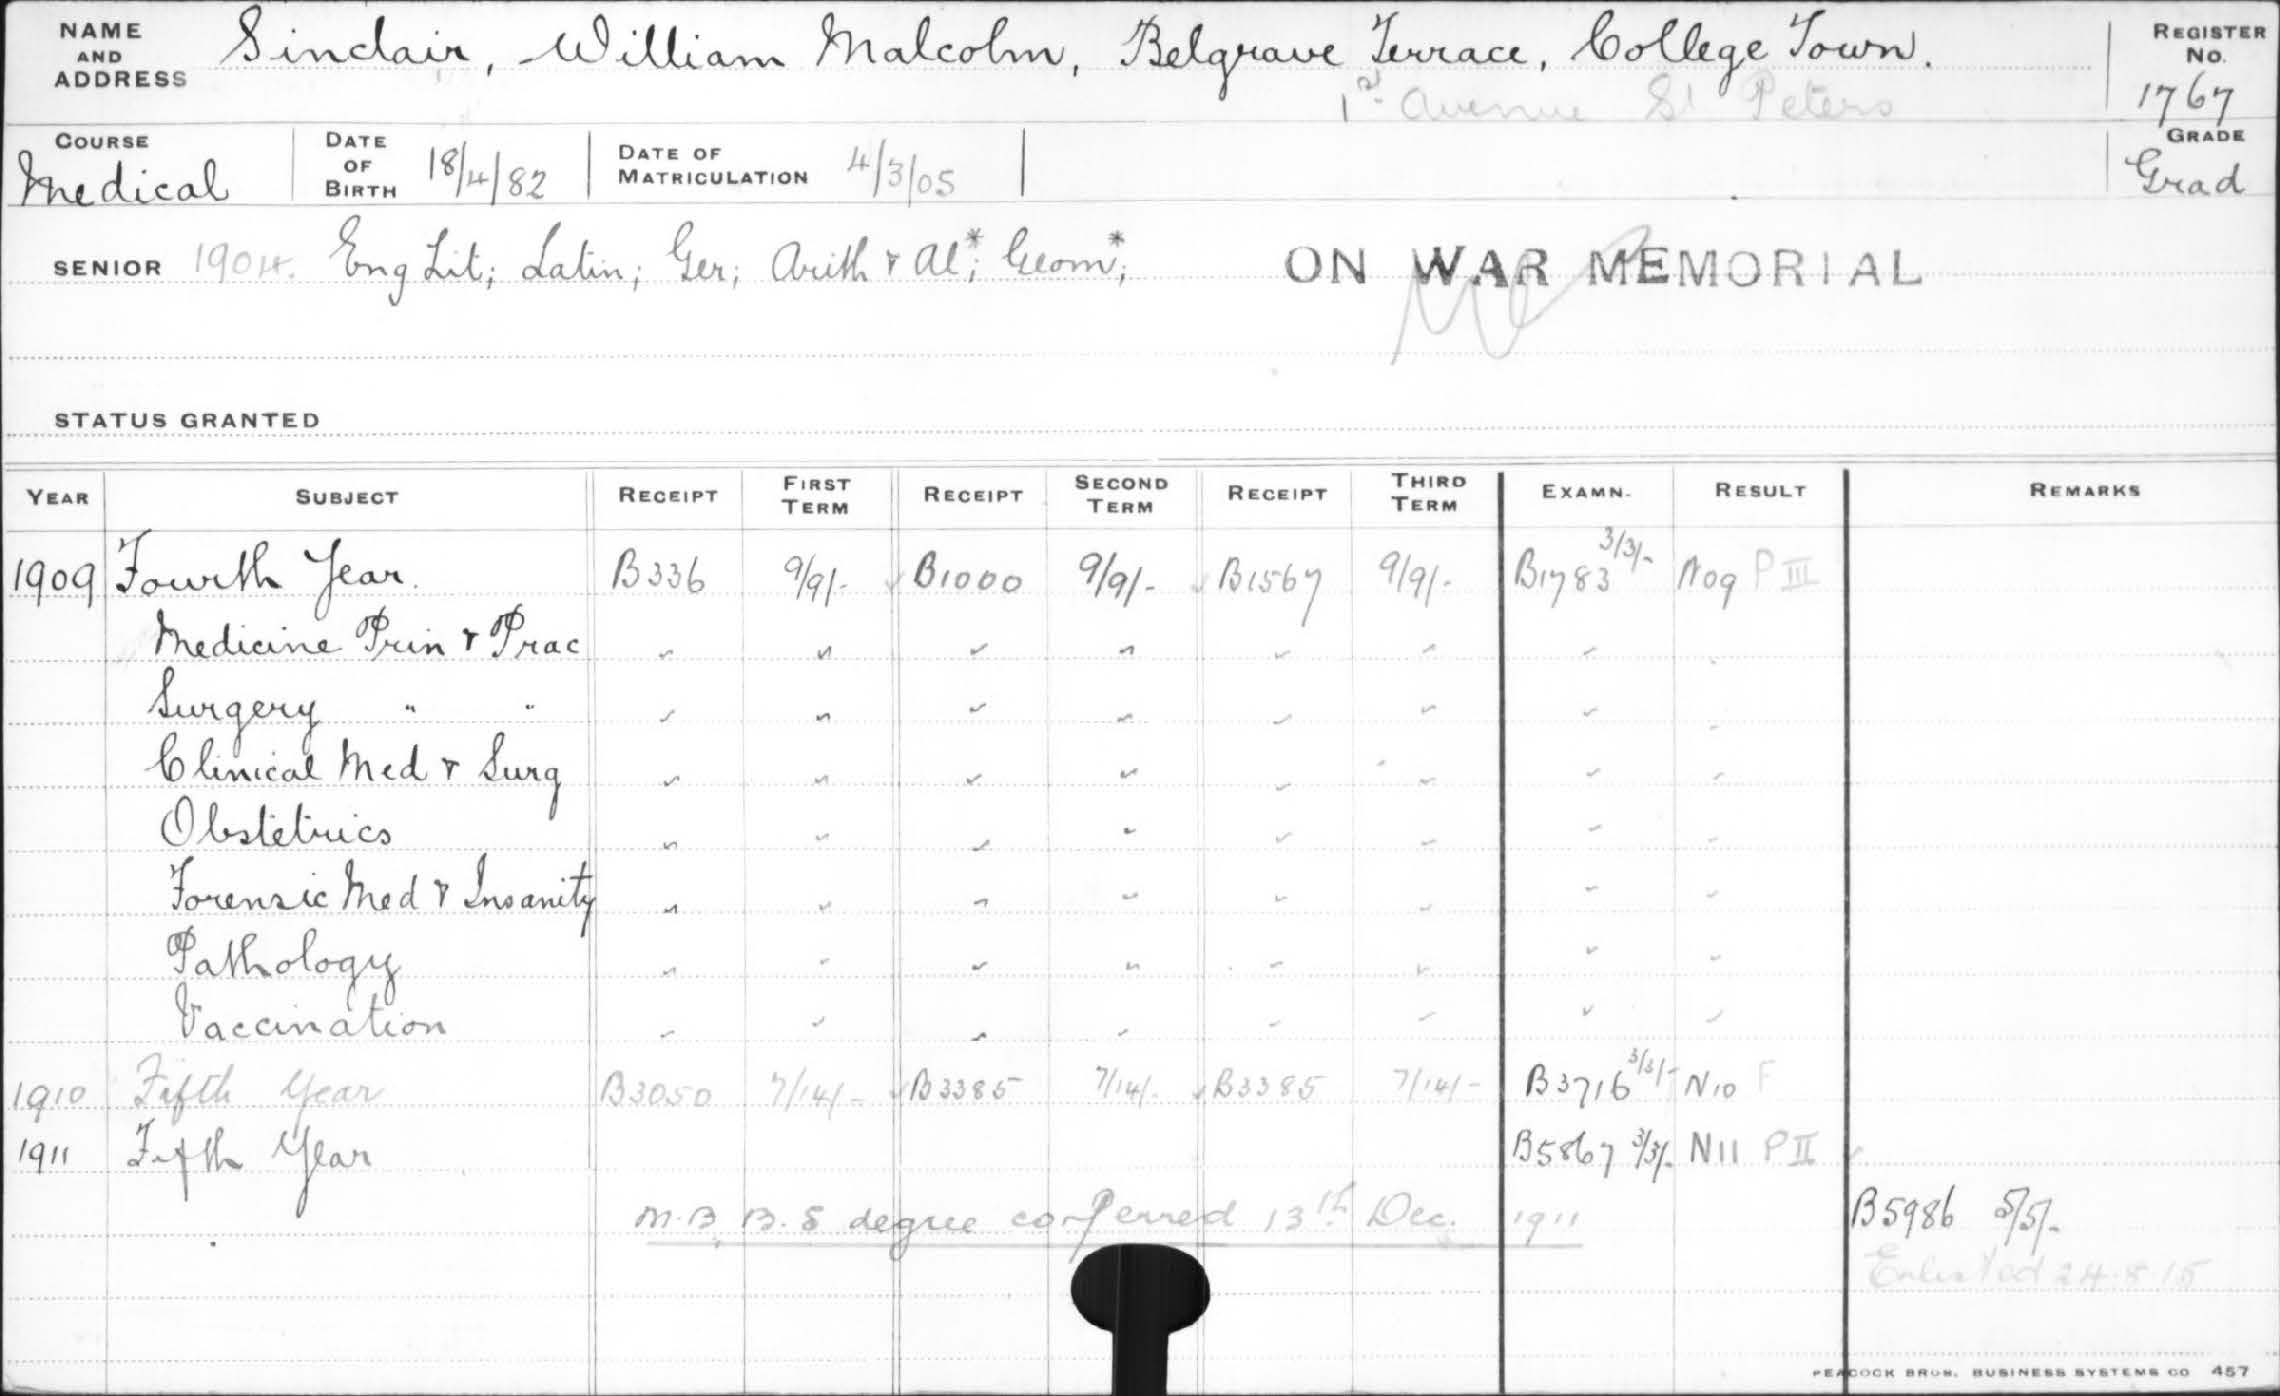 NAME AND ADDRESS Sinclair, William Malcolm, Belgrave Terrace, College Town.
1st Avenue St Peters
REGISTER No. 1767
COURSE Medical DATE OF BIRTH 18/4/82 DATE OF MATRICULATION 4/3/05 GRADE Grad
SENIOR 1904. Eng Lit; Latin; Ger; Arith & Al*; Geom*; ON WAR MEMORIAL
STATUS GRANTED
YEAR SUBJECT RECEIPT FIRST TERM RECEIPT SECOND TERM RECEIPT THIRD TERM EXAMN. RESULT REMARKS
1909 Fourth Year. B336 9/9/- B1000 9/9/- B1567 9/9/- B1783 3/3/- N09 P III
Medicine Prin & Prac
Surgery " "
Clinical Med & Surg
Obstetrics
Forensic Med & Insanity
Pathology
Vaccination
1910 Fifth Year B3050 7/14/- B3385 7/14/- B3385 7/14/- B3716 3/3/- N10 F
1911 Fifth Year B5867 3/3/- N11 P II
M.B B.S degree conferred 13th Dec. 1911 B5986 5/5/-
Enlisted 24.8.15
PEACOCK BROS. BUSINESS SYSTEMS CO 457